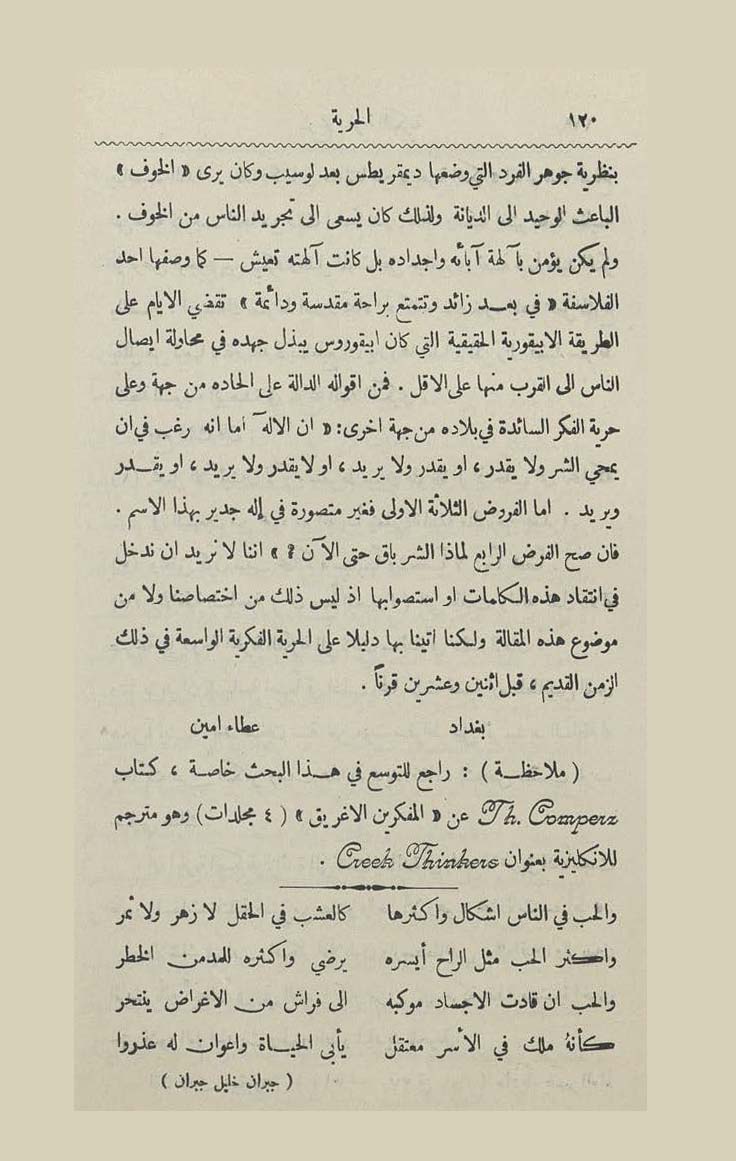 ١٢٠ الحرية
بنظرية جوهر الفرد التي وضعها ديمقريطس بعد لوسيب وكان يرى « الخوف »
الباعث الوحيد الى الديانة ولذلك كان يسعى الى تجريد الناس من الخوف .
ولم يكن يؤمن بآلهة آبائه واجداده بل كانت آلهته تعيش — كما وصفها احد
الفلاسفة « في بعد زائد وتتمتع براحة مقدسة ودائمة » تقضي الايام على
الطريقة الابيقورية الحقيقية التي كان ابيقوروس يبذل جهده في محاولة ايصال
الناس الى القرب منها على الاقل . فمن اقواله الدالة على الحاده من جهة وعلى
حرية الفكر السائدة في بلاده من جهة اخرى : « ان الاله اما انه رغب في ان
يمحي الشر ولا يقدر ، او يقدر ولا يريد ، او لا يقدر ولا يريد ، او يقدر
ويريد . اما الفروض الثلاثة الاولى فغير متصورة في إله جدير بهذا الاسم .
فان صح الفرض الرابع لماذا الشر باق حتى الآن ؟ » اننا لا نريد ان ندخل
في انتقاد هذه الكلمات او استصوابها اذ ليس ذلك من اختصاصنا ولا من
موضوع هذه المقالة ولكننا اتينا بها دليلا على الحرية الفكرية الواسعة في ذلك
الزمن القديم ، قبل اثنين وعشرين قرناً .
بغداد عطاء امين
( ملاحظة ) : راجع للتوسع في هذا البحث خاصة ، كتاب
Th. Comperz عن « المفكرين الاغريق » ( ٤ مجلدات ) وهو مترجم
للانكليزية بعنوان Creek Thinkers .
والحب في الناس اشكال واكثرها كالعشب في الحقل لا زهر ولا ثمر
واكثر الحب مثل الراح أيسره يرضي واكثره للمدمن الخطر
والحب ان قادت الاجساد موكبه الى فراش من الاغراض ينتحر
كأنهُ ملك في الأسر معتقل يأبى الحياة واعوان له غدروا
( جبران خليل جبران )